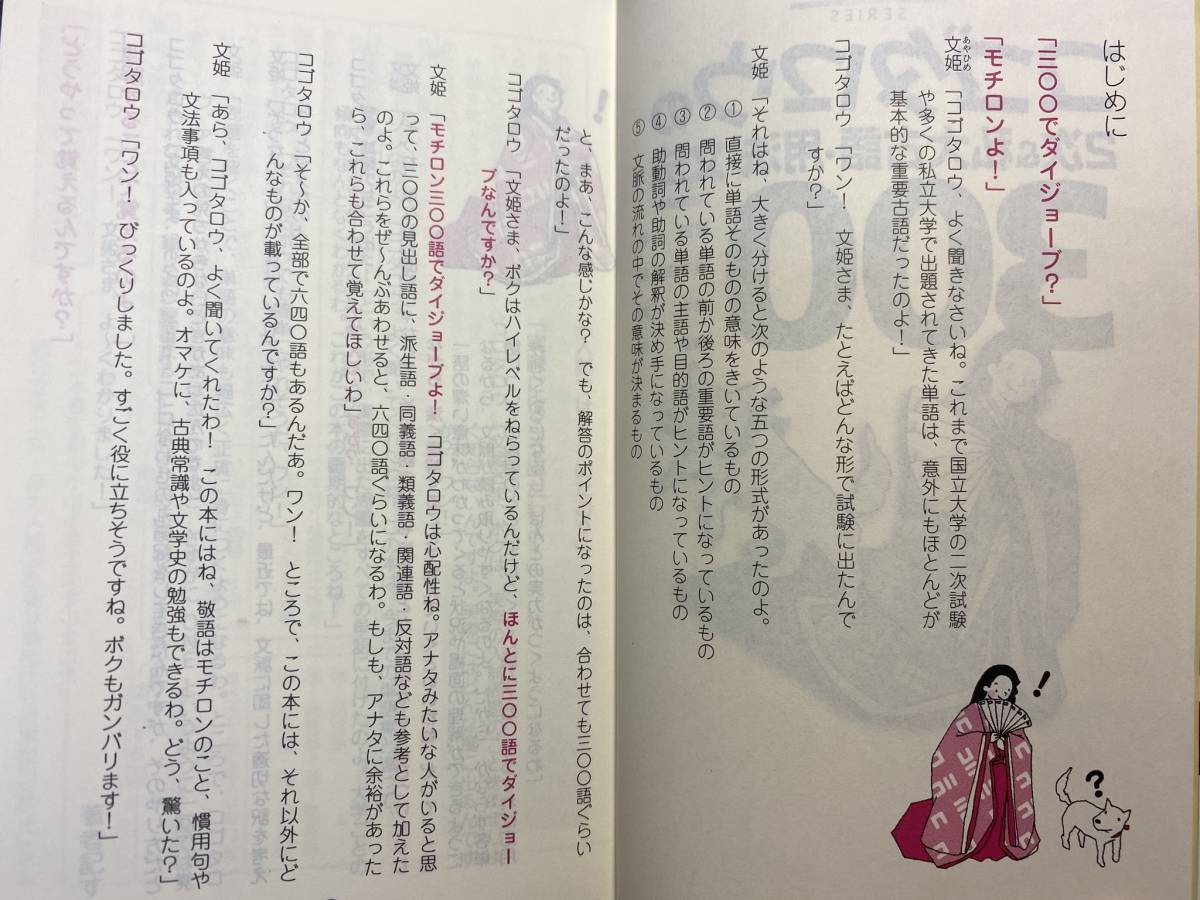 はじめに
「三〇〇でダイジョーブ？」
「モチロンよ！」
あやひめ
文姫「コゴタロウ、よく聞きなさいね。これまで国立大学の二次試験
や多くの私立大学で出題されてきた単語は、意外にもほとんどが
基本的な重要古語だったのよ！」
コゴタロウ「ワン！　文姫さま、たとえばどんな形で試験に出たんで
すか？」
文姫「それはね、大きく分けると次のような五つの形式があったのよ。
① 直接に単語そのものの意味をきいているもの
② 問われている単語の前か後ろの重要語がヒントになっているもの
③ 問われている単語の主語や目的語がヒントになっているもの
④ 助動詞や助詞の解釈が決め手になっているもの
⑤ 文脈の流れの中でその意味が決まるもの
と、まあ、こんな感じかな？　でも、解答のポイントになったのは、合わせても三〇〇語ぐらい
だったのよ！」
コゴタロウ「文姫さま、ボクはハイレベルをねらっているんだけど、ほんとに三〇〇語でダイジョー
ブなんですか？」
文姫「モチロン三〇〇語でダイジョーブよ！　コゴタロウは心配性ね。アナタみたいな人がいると思
って、三〇〇の見出し語に、派生語・同義語・類義語・関連語・反対語なども参考として加えた
のよ。これらをぜ〜んぶあわせると、六四〇語ぐらいになるわ。もしも、アナタに余裕があった
ら、これらも合わせて覚えてほしいわ」
コゴタロウ「そ〜か、全部で六四〇語もあるんだあ。ワン！　ところで、この本には、それ以外にど
んなものが載っているんですか？」
文姫「あら、コゴタロウ、よく聞いてくれたわ！　この本にはね、敬語はモチロンのこと、慣用句や
文法事項も入っているのよ。オマケに、古典常識や文学史の勉強もできるわ。どう、驚いた？」
コゴタロウ「ワン！　びっくりしました。すごく役に立ちそうですね。ボクもガンバリます！」
！
？